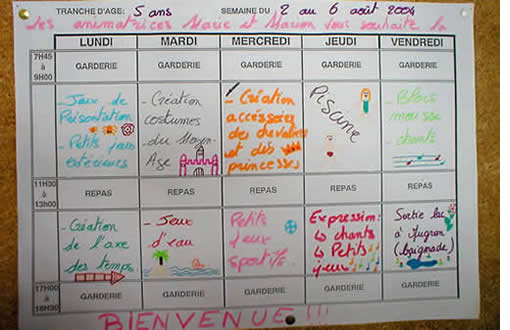 TRANCHE D'AGE: 5 ans SEMAINE DU 2 au 6 août 2004
Les animatrices Marie et Marion vous souhaite la
LUNDI MARDI MERCREDI JEUDI VENDREDI
7H45 à 9H00 GARDERIE GARDERIE GARDERIE GARDERIE GARDERIE
- Jeux de
Présentation
- Petits jeux
extérieurs
- Création
costumes
du Moyen-
Age
- Création
accéssoires
des chevaliers
et des
princesses
Piscine
- Blocs
mousse
chants
11H30 à 13H00 REPAS REPAS REPAS REPAS REPAS
- Création
de l'axe
des temps
- Jeux
d'eau
Petits
jeux
sportifs
Expression:
↳ chants
↳ Petits
jeux
Sortie lac
à Jugon
(baignade)
17H00 à 18H30 GARDERIE GARDERIE GARDERIE GARDERIE GARDERIE
BIENVENUE !!!